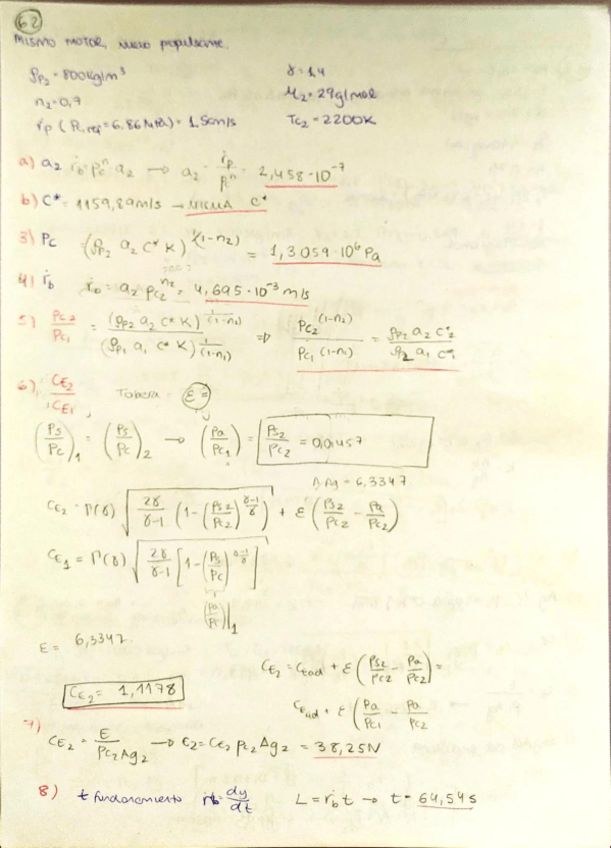 62
MISMO MOTOR, nuevo propulsante.
ρp2 = 800kg/m³ γ = 1,4
n2 = 0,7 M2 = 29g/mol
ṙp (Pc,ref = 6,86 MPa) = 1.5cm/s Tc2 = 2200K
a) a2 ṙb = pc^n · a2 → a2 = ṙp/pc^n = 2,458·10^-7
b) C* = 1159,89m/s → MISMA C*
3) Pc (ρp2 a2 c* K)^(1-n2) = 1,3059·10^6 Pa
4) ṙb ṙb = a2 pc2^n2 = 4,695·10^-3 m/s
5) Pc2/Pc1 = (ρp2 a2 c* K)^(1/(1-n2)) / (ρp1 a1 c* K)^(1/(1-n1)) ⇒ Pc2^(1-n2) / Pc1^(1-n1) = ρp2 a2 c2* / ρp2 a1 c1*
6) CE2/CE1, Tobera = ε =
(Ps/Pc)1 = (Ps/Pc)2 → (Pa/Pc1) = Ps2/Pc2 = 0,01457
Ag = 6,3347
CE2 = Γ(γ) √(2γ/γ-1 (1-(Ps2/Pc2)^(γ-1/γ))) + ε (Ps2/Pc2 - Pa/Pc2)
CE1 = Γ(γ) √(2γ/γ-1 [1-(Ps/Pc)^(γ-1/γ)])
(Pa/Pc)|1
ε = 6,3347
CE2 = CEad + ε (Ps2/Pc2 - Pa/Pc2) =
CE2 = 1,1178
CEad + ε (Pa/Pc1 - Pa/Pc2
7) CE2 = E/Pc2 Ag2 → E2 = CE2 pc2 Ag2 = 38,25N
8) t funcionamiento ṙb = dy/dt L = ṙb t → t = 64,54s